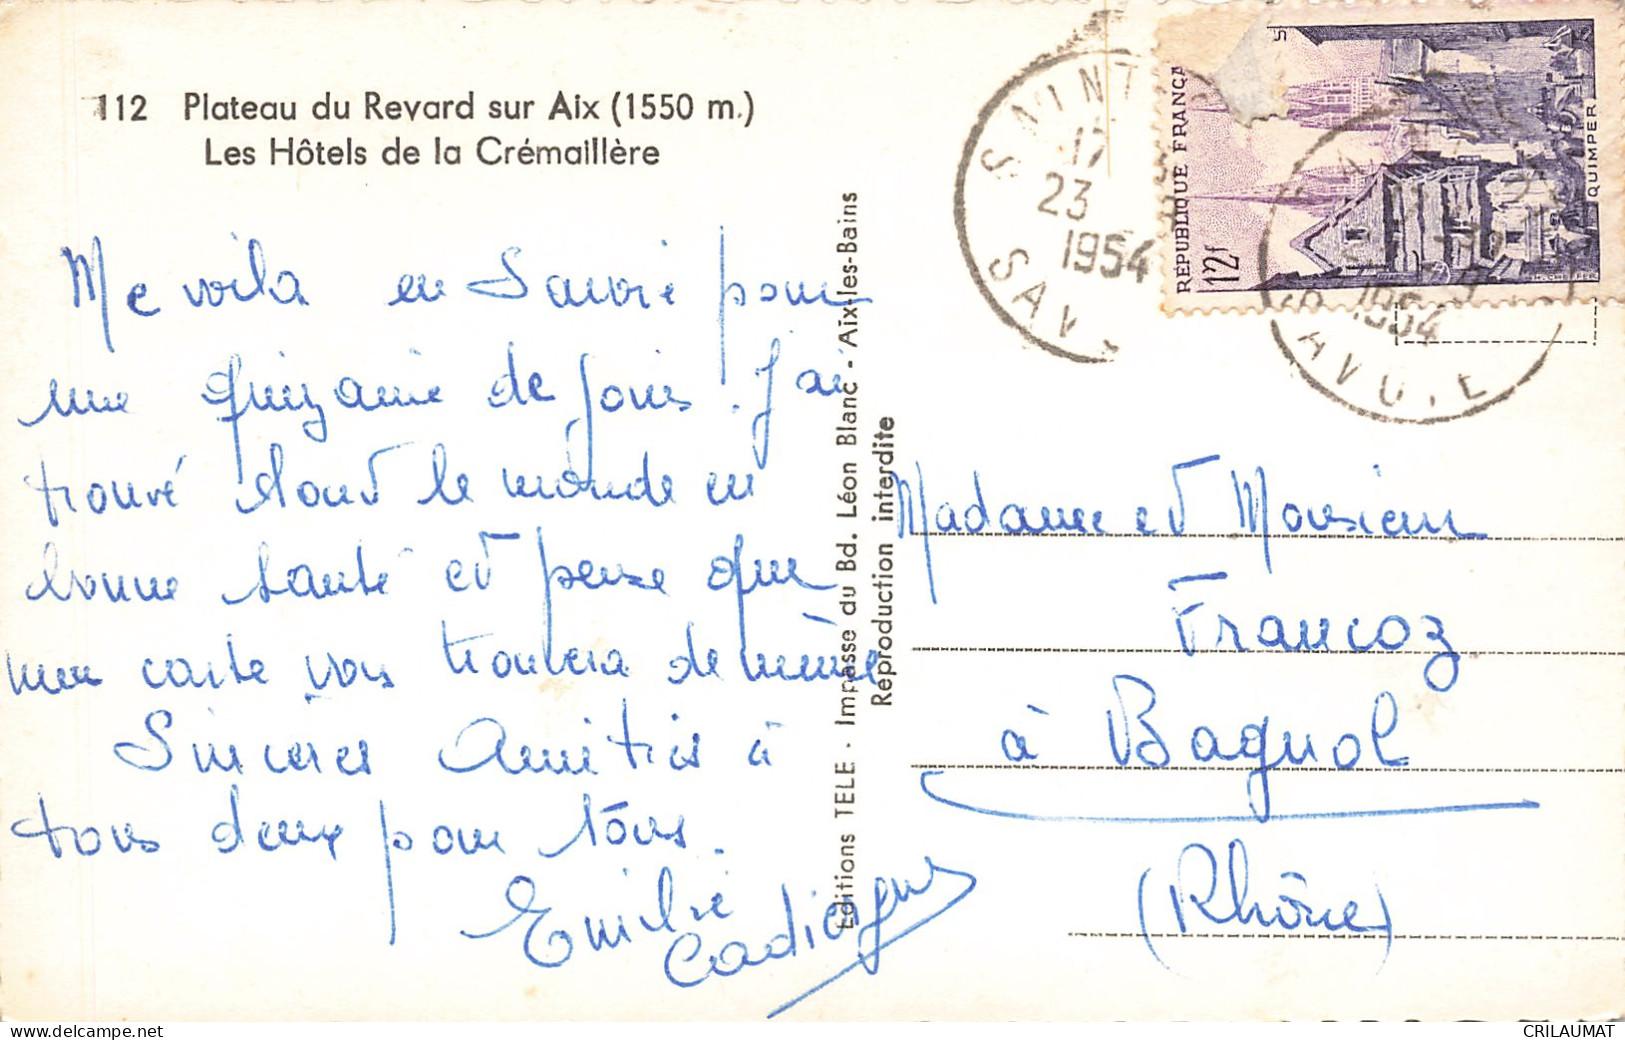 112 Plateau du Revard sur Aix (1550 m.)
Les Hôtels de la Crémaillère
Me voila en Savoie pour
une quizaine de jours. J'ai
trouvé tout le monde en
bonne santé et pense que
ma carte vous trouvera de même
Sincères Amitiés à
tous deux pour tous.
Emilie
Editions TELE - Impasse du Bd. Léon Blanc - Aix-les-Bains
Reproduction interdite
SAINT
17
23
1954
SAV
RÉPUBLIQUE FRANÇA
12f
QUIMPER
1954
Madame et Monsieur
Francoz
à Bagnol
(Rhône)
CRILAUMAT